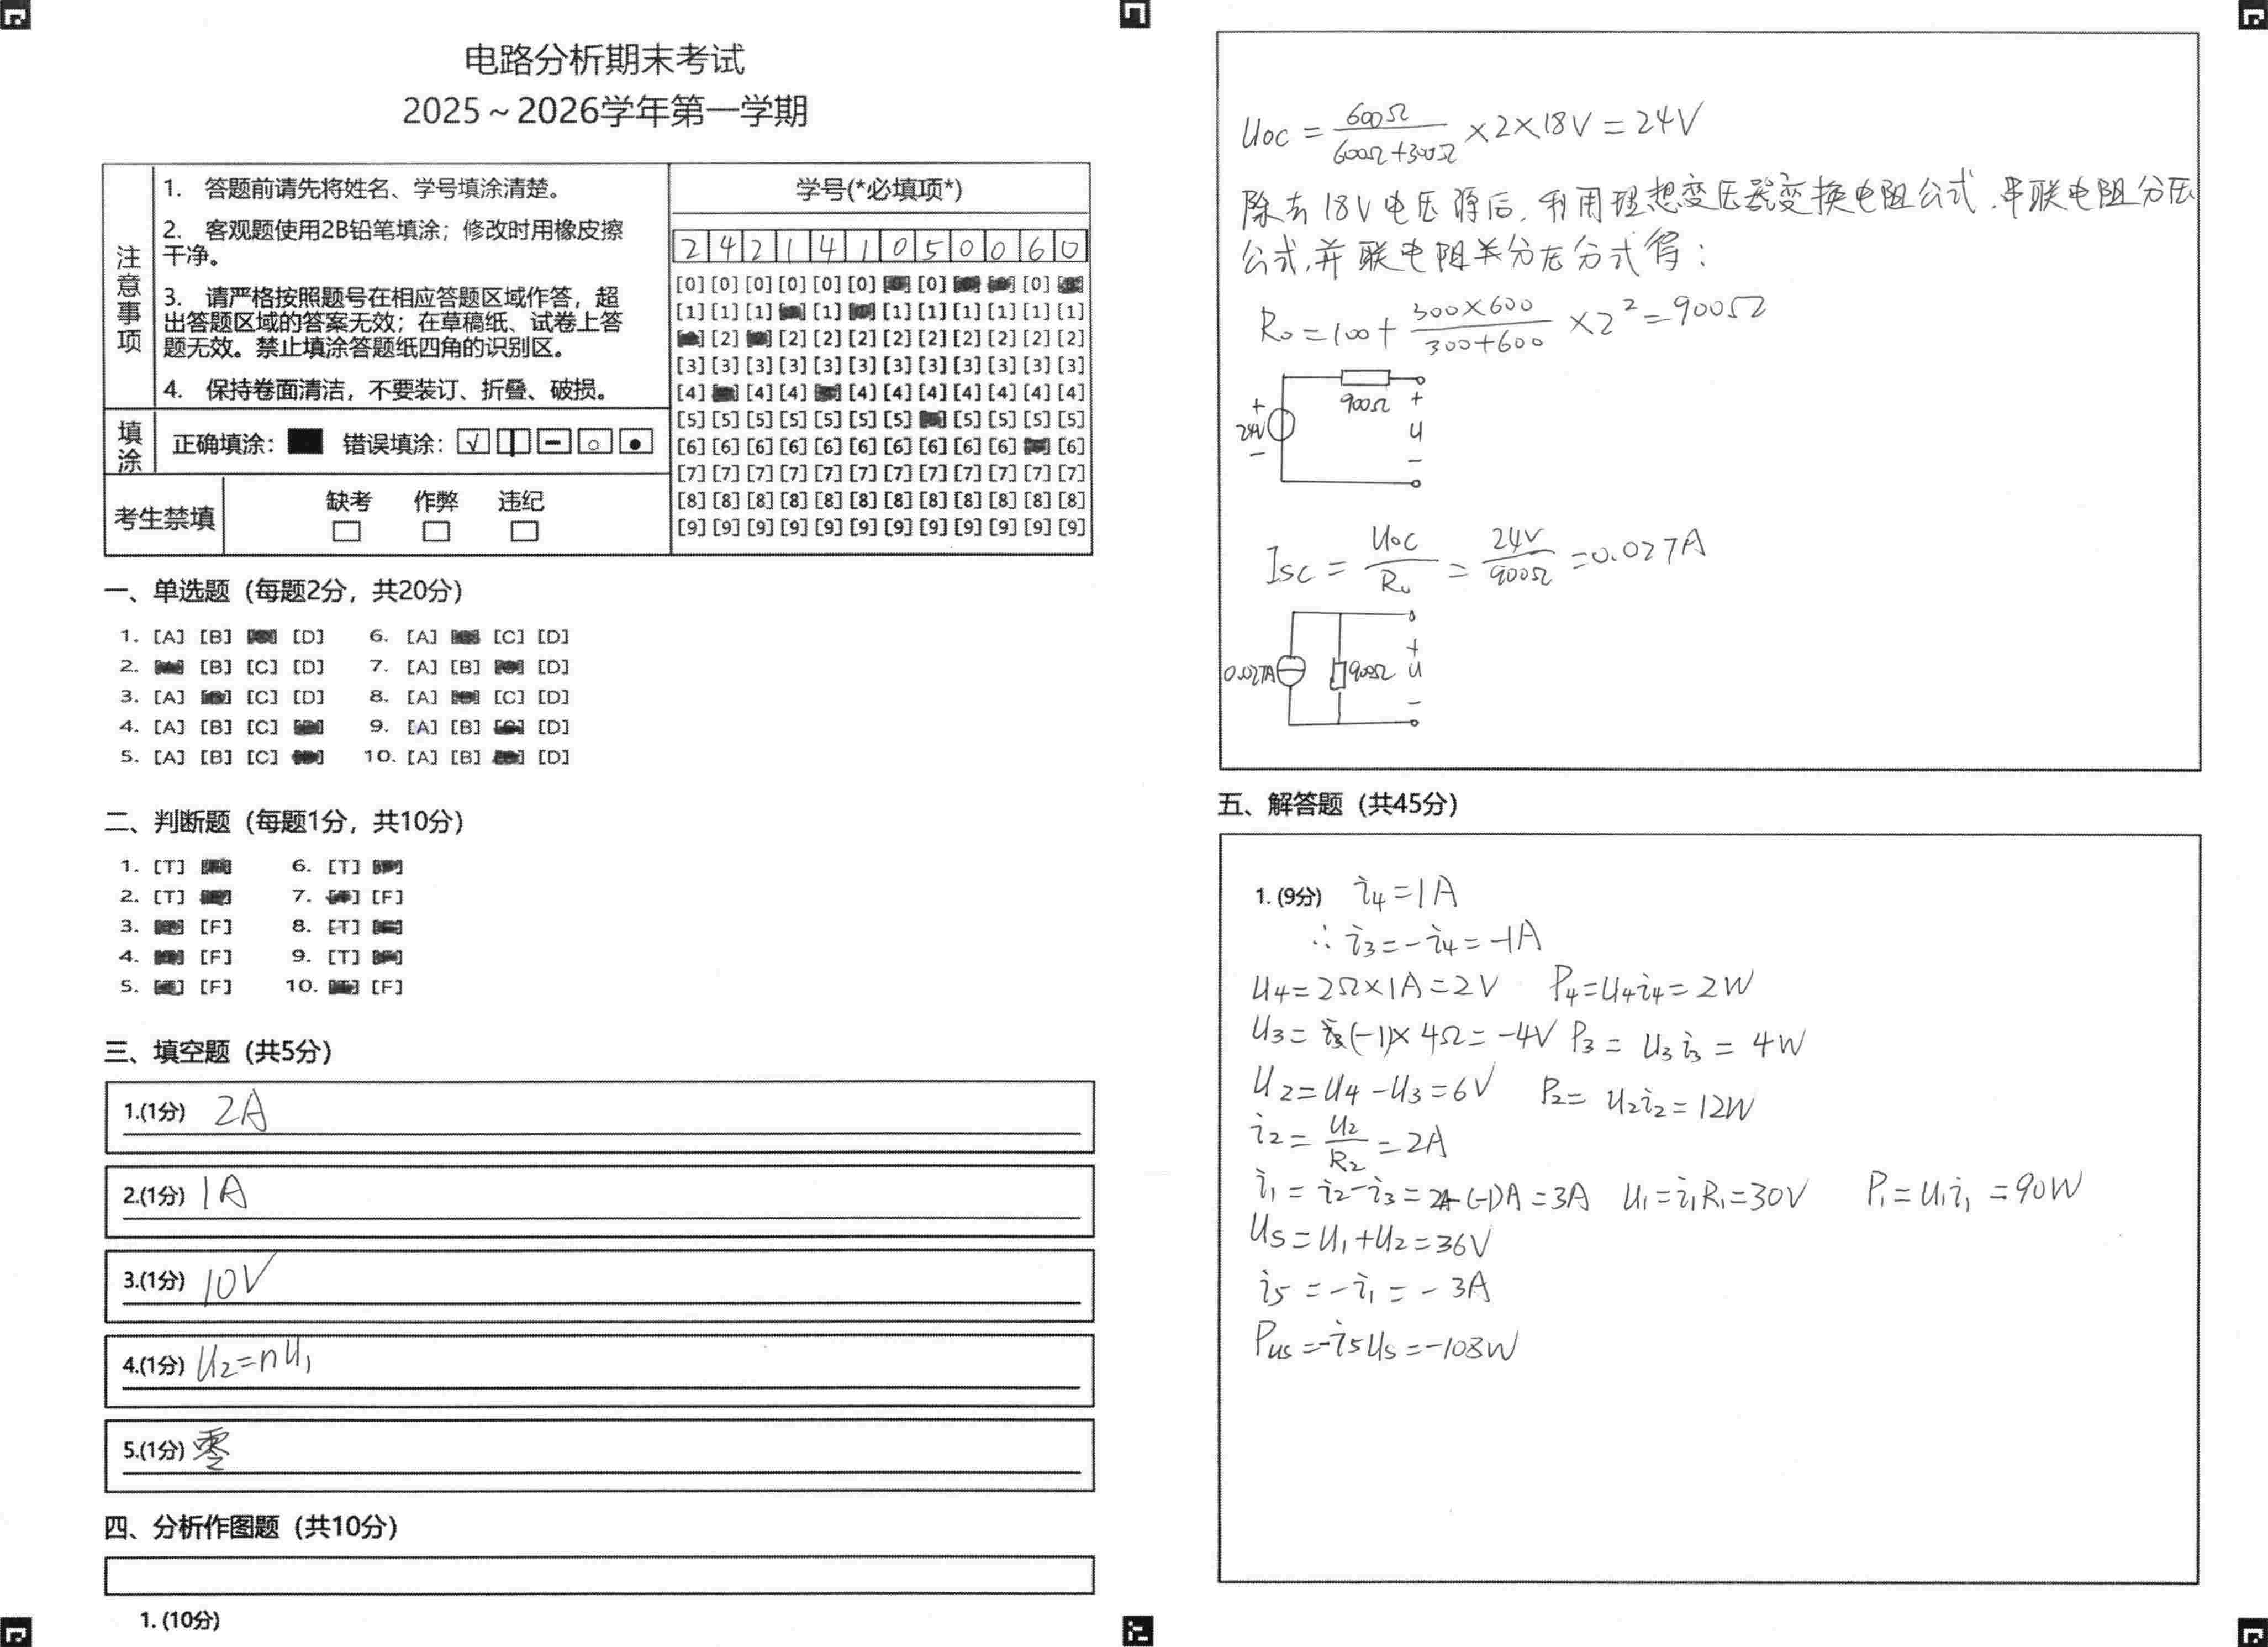 电路分析期末考试
2025～2026学年第一学期
注意事项
1. 答题前请先将姓名、学号填涂清楚。
2. 客观题使用2B铅笔填涂；修改时用橡皮擦
干净。
3. 请严格按照题号在相应答题区域作答，超
出答题区域的答案无效；在草稿纸、试卷上答
题无效。禁止填涂答题纸四角的识别区。
4. 保持卷面清洁，不要装订、折叠、破损。
填涂 正确填涂： 错误填涂：
考生禁填 缺考 作弊 违纪
学号(*必填项*)
2 4 2 1 4 1 0 5 0 0 6 0
[0] [0] [0] [0] [0] [0] [0] [0]
[1] [1] [1] [1] [1] [1] [1] [1] [1] [1]
[2] [2] [2] [2] [2] [2] [2] [2] [2] [2]
[3] [3] [3] [3] [3] [3] [3] [3] [3] [3] [3] [3]
[4] [4] [4] [4] [4] [4] [4] [4] [4] [4]
[5] [5] [5] [5] [5] [5] [5] [5] [5] [5] [5]
[6] [6] [6] [6] [6] [6] [6] [6] [6] [6] [6]
[7] [7] [7] [7] [7] [7] [7] [7] [7] [7] [7] [7]
[8] [8] [8] [8] [8] [8] [8] [8] [8] [8] [8] [8]
[9] [9] [9] [9] [9] [9] [9] [9] [9] [9] [9] [9]
一、单选题（每题2分，共20分）
1. [A] [B] [D] 6. [A] [C] [D]
2. [B] [C] [D] 7. [A] [B] [D]
3. [A] [C] [D] 8. [A] [C] [D]
4. [A] [B] [C] 9. [A] [B] [D]
5. [A] [B] [C] 10. [A] [B] [D]
二、判断题（每题1分，共10分）
1. [T] 6. [T]
2. [T] 7. [F]
3. [F] 8. [T]
4. [F] 9. [T]
5. [F] 10. [F]
三、填空题（共5分）
1.(1分) 2A
2.(1分) 1A
3.(1分) 10V
4.(1分) U₂=nU₁
5.(1分) 零
四、分析作图题（共10分）
1. (10分)
Uoc = 600Ω/(600Ω+300Ω) ×2×18V=24V
除去18V电压源后，利用理想变压器变换电阻公式，串联电阻分压
公式，并联电阻分式得：
R₀=100+ (300×600)/(300+600) ×2²=900Ω
900Ω
+ 24V −
+ u −
Isc = Uoc/R₀ = 24V/900Ω =0.027A
0.027A 900Ω + u −
五、解答题（共45分）
1. (9分) i₄=1A
∴ i₃=-i₄=-1A
U₄=2Ω×1A=2V P₄=U₄i₄=2W
U₃=(-1)×4Ω=-4V P₃=U₃i₃=4W
U₂=U₄-U₃=6V P₂=U₂i₂=12W
i₂=U₂/R₂=2A
i₁=i₂-i₃=2A-(-1)A=3A U₁=i₁R₁=30V P₁=U₁i₁=90W
Us=U₁+U₂=36V
i₅=-i₁=-3A
Pus=-i₅Us=-108W